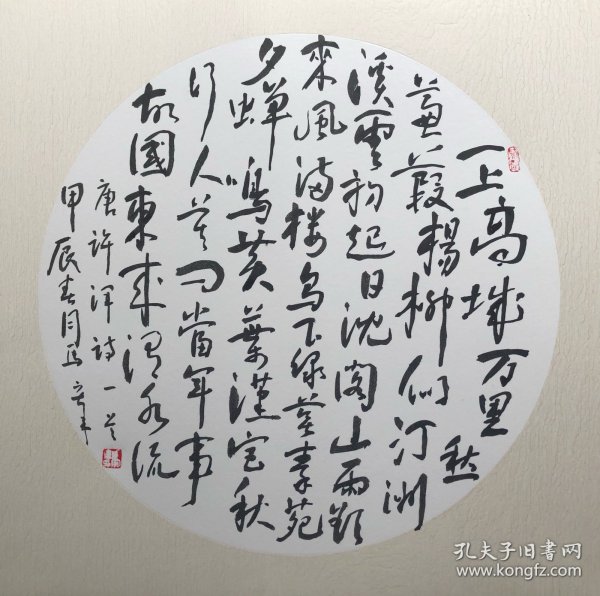 一上高城万里愁
蒹葭楊柳似汀洲
溪雲初起日沈閣山雨欲
來風满楼鸟下绿芜秦苑
夕蝉鸣黄葉漢宫秋
行人莫问當年事
故國東来渭水流
唐許渾詩一首
甲辰春月
孔夫子旧书网
www.kongfz.com